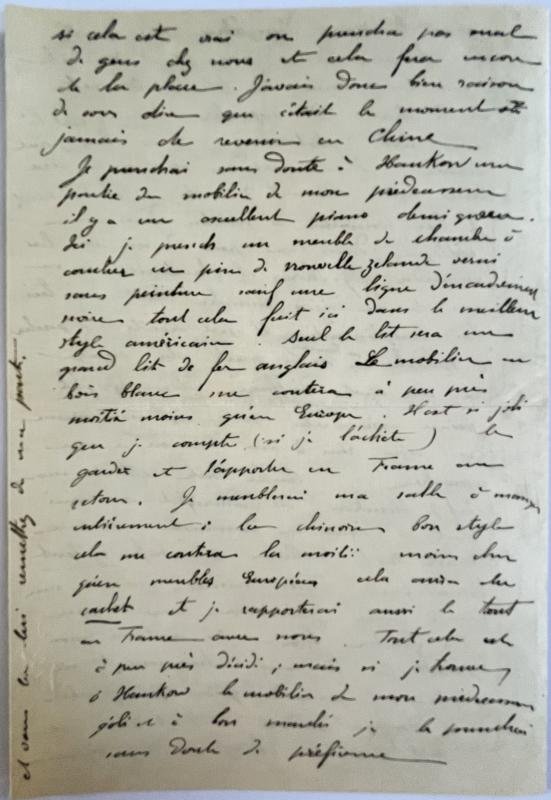 si cela est vrai on prendra pas mal
de gens chez nous et cela fera encore
de la place. J'avais donc bien raison
de vous dire que c'était le moment ou
jamais de revenir en Chine
Je prendrai sans doute à Hankow une
partie du mobilier de mon prédécesseur
il y a un excellent piano demi queue.
Ici je prends un meuble de chambre à
coucher en pin de nouvelle zelande verni
sans peinture sauf une ligne d'encadrement
noire tout cela fait ici dans le meilleur
style américain. Seul le lit sera un
grand lit de fer anglais Le mobilier en
bois blanc me coutera à peu près
moitié moins qu'en Europe. Il est si joli
que je compte (si je l'achète) le
garder et l'apporter en France au
retour. Je meublerai ma salle à manger
entièrement à la chinoise bon style
cela me coutera la moitié moins cher
qu'en meubles Européens cela aura du
cachet et je rapporterai aussi le tout
en France avec nous. Tout cela est
à peu près décidé ; mais si je trouve
à Hankow le mobilier de mon prédécesseur
joli et à bon marché je le prendrai
sans doute de préférence
et vous la lui remettez de ma part.